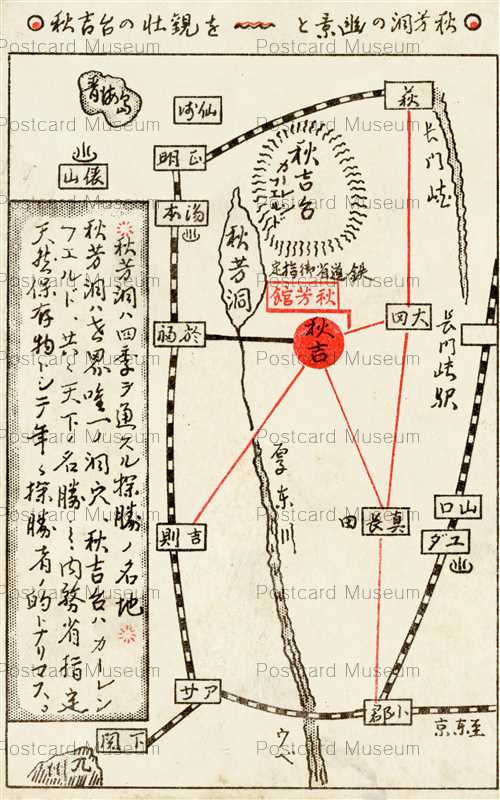 秋芳洞の幽景と 〰 を観壮の台吉秋
青海島
仙崎
萩
正明
俵山
湯本
秋吉台
カルレンフェルド
長門峡
秋芳洞
鉄道省御指定
秋芳館
秋吉
大田
於福
長門峡駅
秋芳洞ハ四季ヲ通ズル探勝ノ名地
秋芳洞ハ世界唯一ノ洞穴、秋吉台ハカーレン
フエルド、共ニ天下ノ名勝ニシテ内務省指定
天然保存物トシテ年々探勝者ノ的トナリ
厚東川
吉則
真長田
山口
ユダ
アサ
小郡
至東京
下関
九
ウベ
Postcard Museum